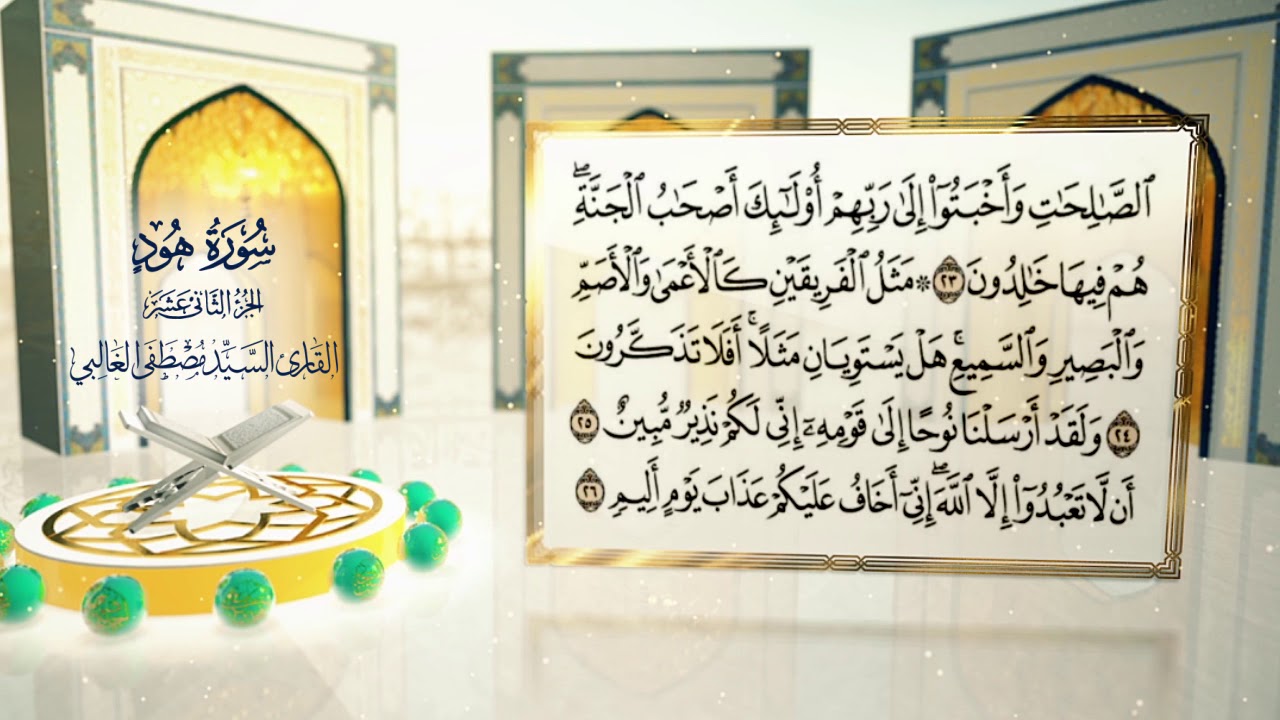 سُورَةُ هُودٍ
الجزء الثاني عشر
القارئ السيد مصطفى الغالبي
ٱلصَّٰلِحَٰتِ وَأَخْبَتُوٓا۟ إِلَىٰ رَبِّهِمْ أُو۟لَٰٓئِكَ أَصْحَٰبُ ٱلْجَنَّةِ ۖ
هُمْ فِيهَا خَٰلِدُونَ ٢٣ ۞ مَثَلُ ٱلْفَرِيقَيْنِ كَٱلْأَعْمَىٰ وَٱلْأَصَمِّ
وَٱلْبَصِيرِ وَٱلسَّمِيعِ ۚ هَلْ يَسْتَوِيَانِ مَثَلًا ۚ أَفَلَا تَذَكَّرُونَ
٢٤ وَلَقَدْ أَرْسَلْنَا نُوحًا إِلَىٰ قَوْمِهِۦٓ إِنِّى لَكُمْ نَذِيرٌ مُّبِينٌ ٢٥
أَن لَّا تَعْبُدُوٓا۟ إِلَّا ٱللَّهَ ۖ إِنِّىٓ أَخَافُ عَلَيْكُمْ عَذَابَ يَوْمٍ أَلِيمٍ ٢٦